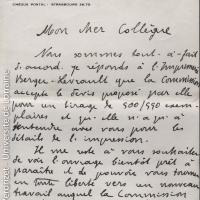 CHÈQUE POSTAL : STRASBOURG
Mon cher Collègue
Nous sommes tout-à-fait
d'accord. Je réponds à l'Imprimerie
Berger-Levrault que la Commission
accepte le devis proposé par elle
pour un tirage de 500/550 exem-
plaires et qu'elle n'a qu'à
s'entendre avec vous pour les
détails de l'impression.
Il me reste à vous souhaiter
de voir l'ouvrage bientôt prêt à
paraître et de pouvoir vous tourner
en toute liberté vers un nouveau
travail auquel la Commission
Université de Lorraine